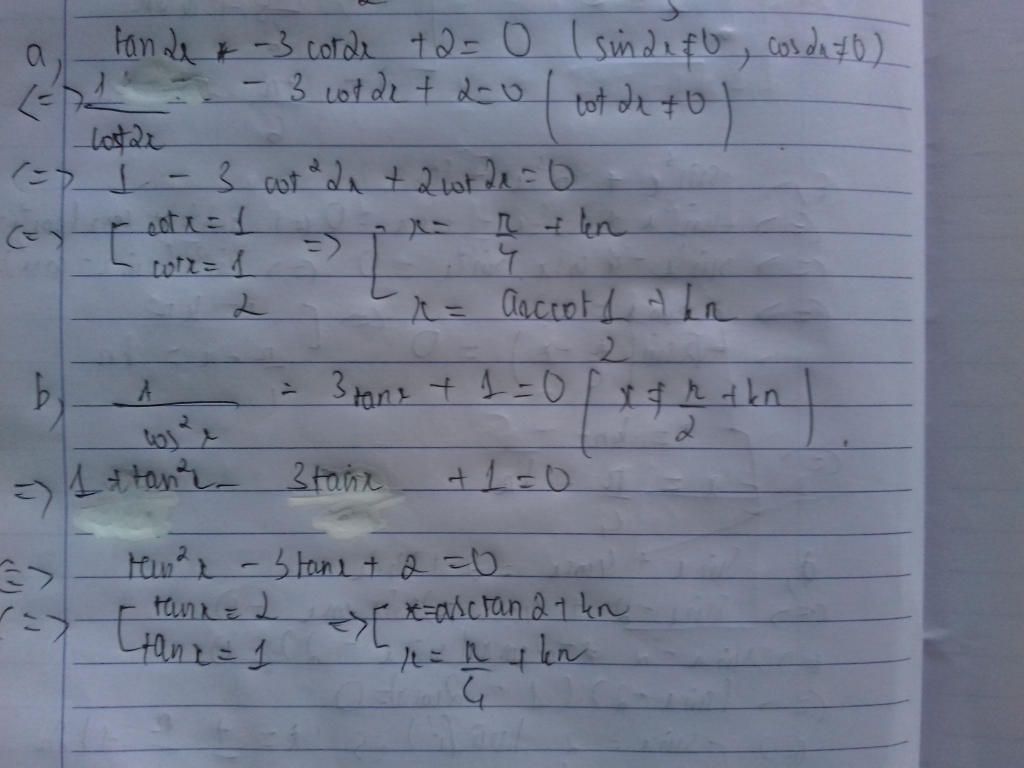 a, tan2x - 3 cot2x + 2 = 0 (sin2x ≠ 0, cos2x ≠ 0)
<=> 1/cot2x - 3 cot2x + 2 = 0 (cot2x ≠ 0)
<=> 1 - 3 cot²2x + 2cot2x = 0
<=> [ cotx = 1 => [ x = π/4 + kπ
cotx = 1/2 x = arccot 1/2 + kπ
b, 1/cos²x - 3tanx + 1 = 0 (x ≠ π/2 + kπ).
=> 1 + tan²x - 3tanx + 1 = 0
<=> tan²x - 3tanx + 2 = 0
<=> [ tanx = 2 => [ x = arctan2 + kπ
tanx = 1 x = π/4 + kπ